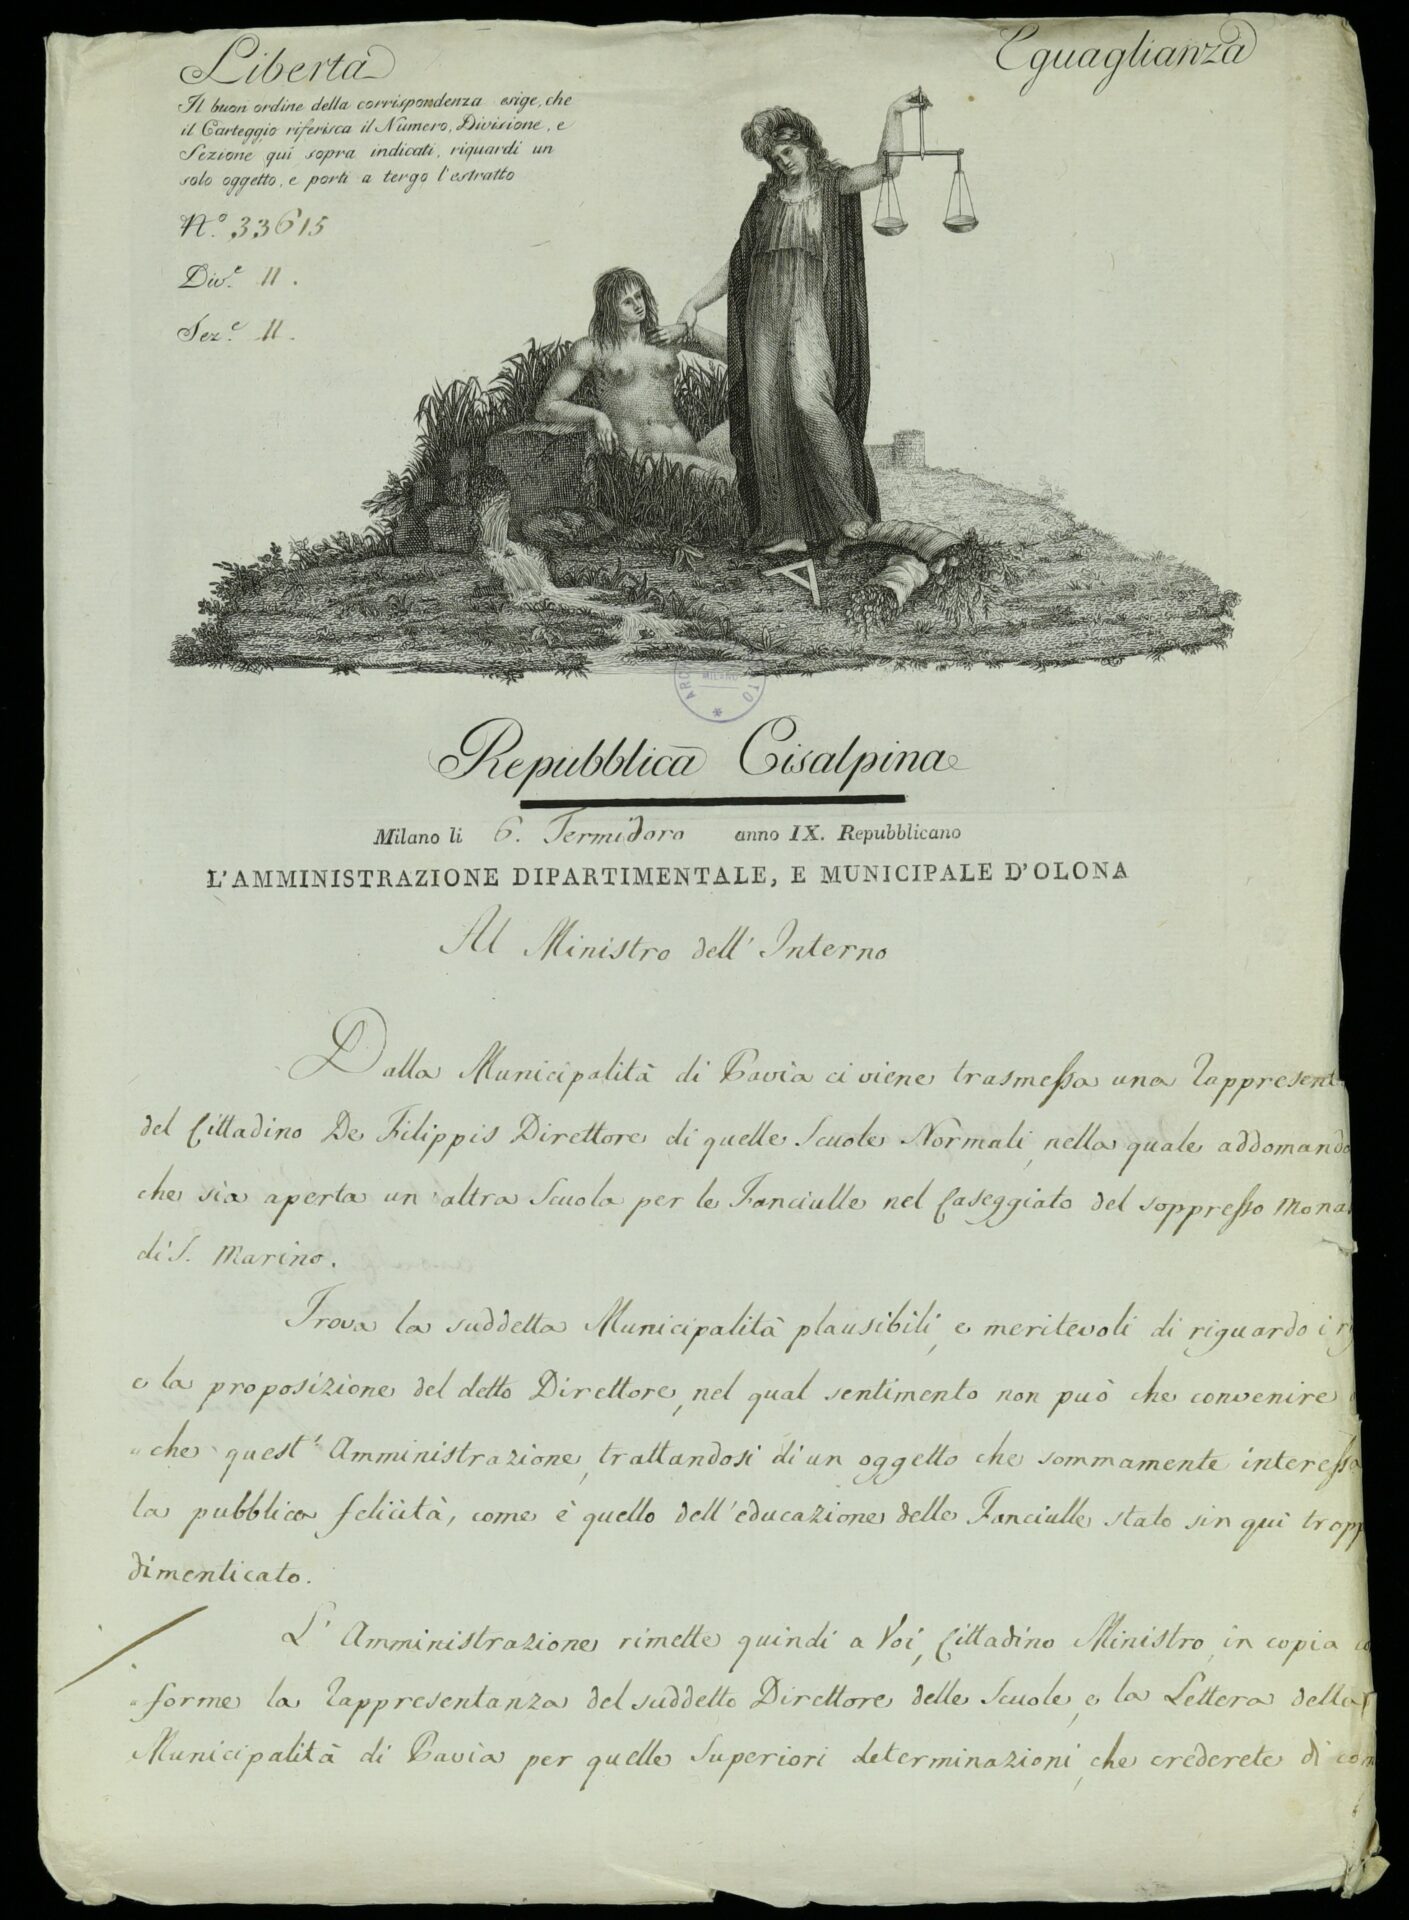 Libertà
Eguaglianza
Il buon ordine della corrispondenza esige, che
il Carteggio riferisca il Numero, Divisione, e
Sezione qui sopra indicati, riguardi un
solo oggetto, e porti a tergo l'estratto
N.o 33615
Div.e II.
Sez.e II.
MILANO
Repubblica Cisalpina
Milano li 6. Termidoro anno IX. Repubblicano
L'AMMINISTRAZIONE DIPARTIMENTALE, E MUNICIPALE D'OLONA
Al Ministro dell'Interno
Dalla Municipalità di Pavia ci viene trasmessa una Rappresent
del Cittadino De Filippis Direttore di quelle Scuole Normali, nella quale addomanda
che sia aperta un altra Scuola per le Fanciulle nel Caseggiato del soppresso Mona
di S. Marino.
Trova la suddetta Municipalità plausibili, e meritevoli di riguardo i
e la proposizione del detto Direttore, nel qual sentimento non può che convenire
che quest'Amministrazione, trattandosi di un oggetto che sommamente interessa
la pubblica felicità, come è quello dell'educazione delle Fanciulle stato sin qui tropp
dimenticato.
L'Amministrazione rimette quindi a Voi, Cittadino Ministro, in copia co
forme la Rappresentanza del suddetto Direttore delle Scuole, e la Lettera della
Municipalità di Pavia per quelle Superiori determinazioni, che crederete di com